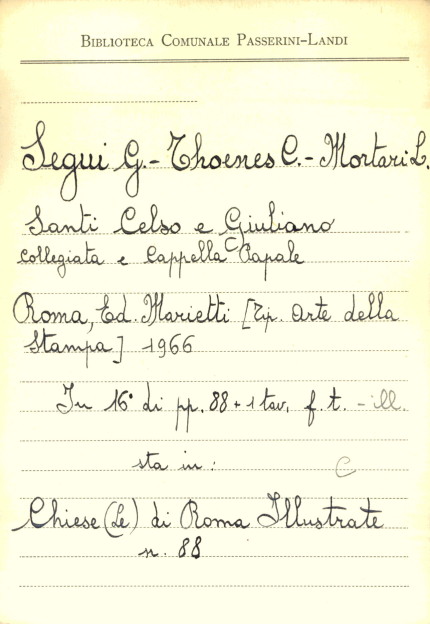 BIBLIOTECA COMUNALE PASSERINI-LANDI
Segui G. - Thoenes C. - Mortari L.
Santi Celso e Giuliano
Collegiata e Cappella Papale
Roma, Ed. Marietti [Tip. Arte della
Stampa] 1966
In 16° di pp. 88 + 1 tav. f. t. - ill.
sta in: C
Chiese (Le) di Roma Illustrate
n. 88